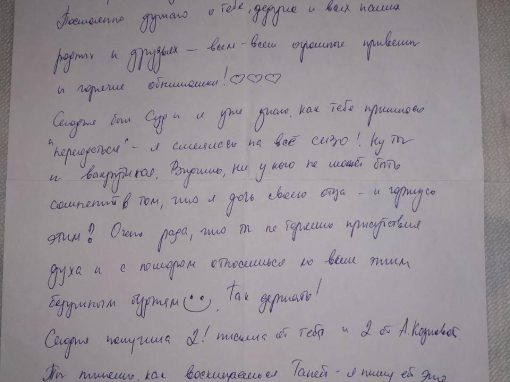 Постоянно думаю о тебе, дедушке и всех наших
родных и друзьях – всем-всем огромные приветы
и горячие обнимашки! ♡♡♡
Сегодня был Суд и я уже знаю, как тебе пришлось
"переодеться" – я смеялась на всё сизо! Ну ты
и вахрутихая. Видимо, ни у кого не может быть
сомнений в том, что я дочь своего отца – и горжусь
этим! Очень рада, что ты не теряешь присутствия
духа и с юмором относишься ко всем этим
безумным бурям Так держать!
Сегодня получила 2! письма от тебя и 2 от А.
Ты пишешь, как восхищаешься Таней – я пишу ей это